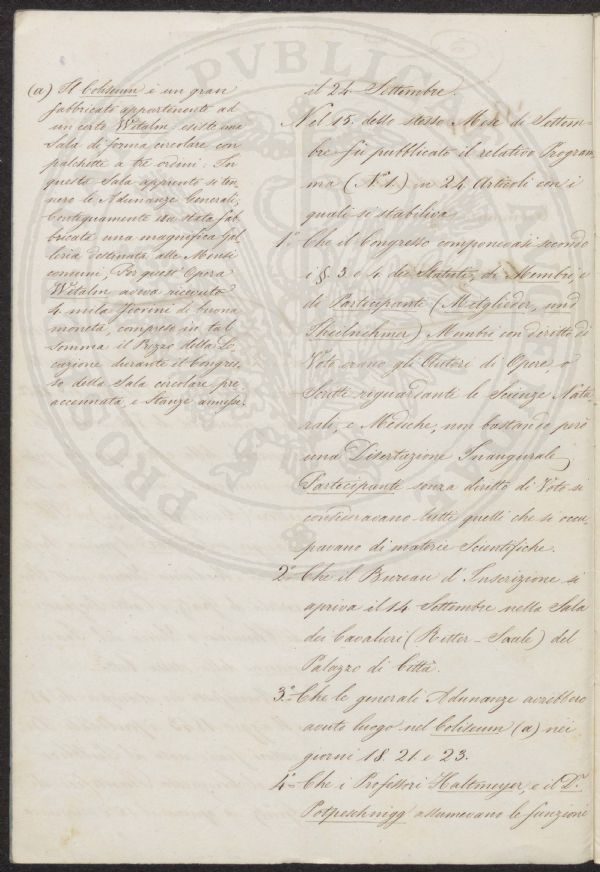 (a) Il Coliseum è un gran
fabbricato appartenente ad
un certo Witalm: esiste una
Sala di forma circolare con
palchetti a tré ordini. In
questa Sala appunto si ten-
nero le Adunanze Generali;
Contiguamente era stata fab-
bricata una magnifica Gal-
leria destinata alle Mense
comuni; Per quest'Opera
Witalm aveva ricevuto
4. mila fiorini di buona
moneta, compreso in tal
somma il Prezzo della Lo-
cazione durante il Congres-
so della Sala circolare pre-
accennata, e Stanze annesse.
il 24 Settembre.
Nel 15. dello stesso Mese di Settem-
bre fù pubblicato il relativo Program-
ma (Nº 1.) in 24 Articoli con i
quali si stabiliva
1.º Che il Congresso componevasi secondo
i § 3. e 4 dei Statuti, di Membri, e
di Participanti (Mitglieder, und
Theilnehmer) Membri con diritto di
Voto erano gli Autori di Opere, o
Scritti riguardanti le Scienze Natu-
rali, e Mediche, non bastando però
una Disertazione Inaugurale,
Participanti senza diritto di Voto si
consideravano tutti quelli che si occu-
pavano di materie Scientifiche.
2.º Che il Bureau d'Inscrizione si
apriva il 14 Settembre nella Sala
dei Cavalieri (Ritter-Saale) del
Palazzo di Città.
3.º Che le generali Adunanze avrebbero
avuto luogo nel Coliseum (a) nei
giorni 18. 21. e 23.
4.º Che i Professori Haltmeyer, e il D.r
Potpeschnigg assumevano le funzioni
PVBLICA